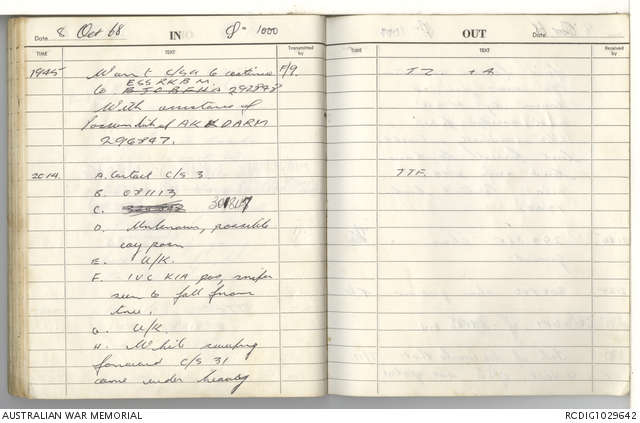 Date 8 Oct 68 IN 1000
TIME TEXT Transmitted by
1945 Want C/S 4 to continue F/9.
EGSRKBM
to BJOBFHA 292848
With assistance of
of AKKDARM
296847.
2014. A. Contact C/S 3
B. 081113
C. 301847
D. Unknown, possible
coy posn
E. U/K.
F. 1 VC KIA pos, sniper
seen to fall from
tree.
G. U/K.
H. While sweeping
forward C/S 31
came under heavy
OUT
TIME TEXT Received by
TTF.
AUSTRALIAN WAR MEMORIAL RCDIG1029642